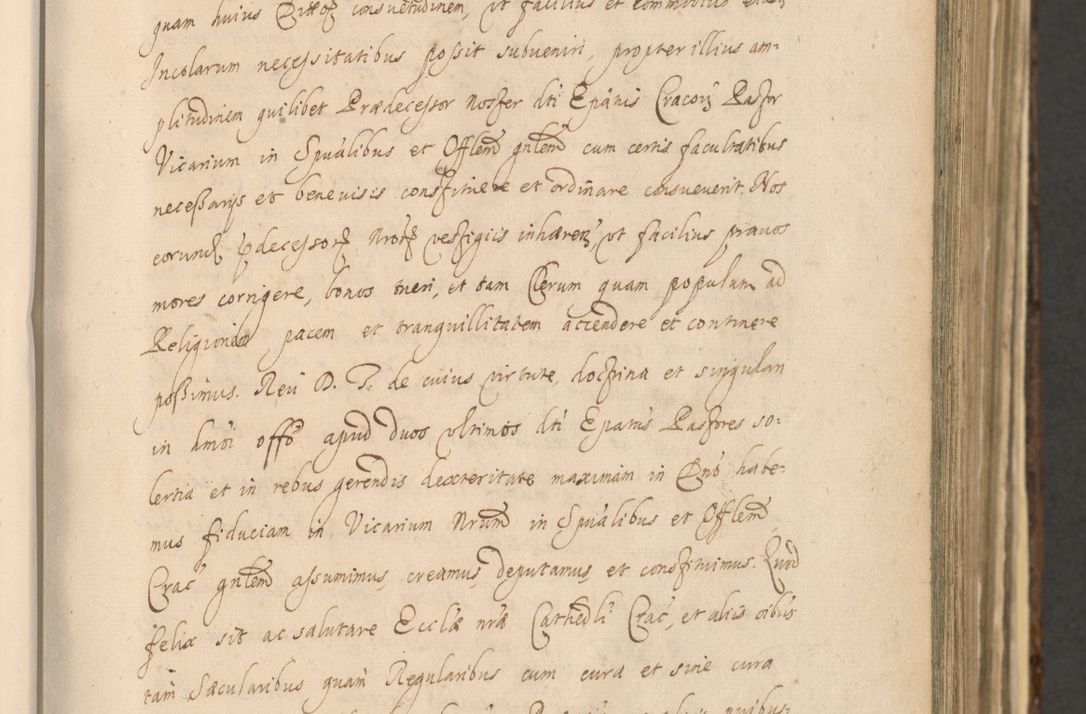 quam huius consuetudinem, ut facilius et commodius
Incolarum necessitatibus possit subveniri, propter illius am-
plitudinem quilibet Prædecessor noster dti Epatus Cracov Pastor
Vicarium in Spualibus et Offlem gnlem cum certis facultatibus
necessarijs et benevisis constituere et ordinare consueverit. Nos
eorund prdecessor nror vestigiis inhæren, ut facilius pravos
mores corrigere, bonos tueri, et tam Clerum quam populum ad
Religionem, pacem et tranquillitatem accendere et continere
possimus. Rev D. T. de cuius virtute, doctrina et singulari
in hmoi offo apud duos ultimos dti Epatus Pastores so-
lertia et in rebus gerendis dexteritate maximam in Dno habe-
mus fiduciam in Vicarium Nrum in Spualibus et Offlem
Crac gnlem assumimus, creamus, deputamus, et constituimus. Quod
felix sit ac salutare Ecclæ nræ Cathedli Crac, et aliis oibus
tam Sæcularibus quam Regularibus cum cura et sine cura
quibus-